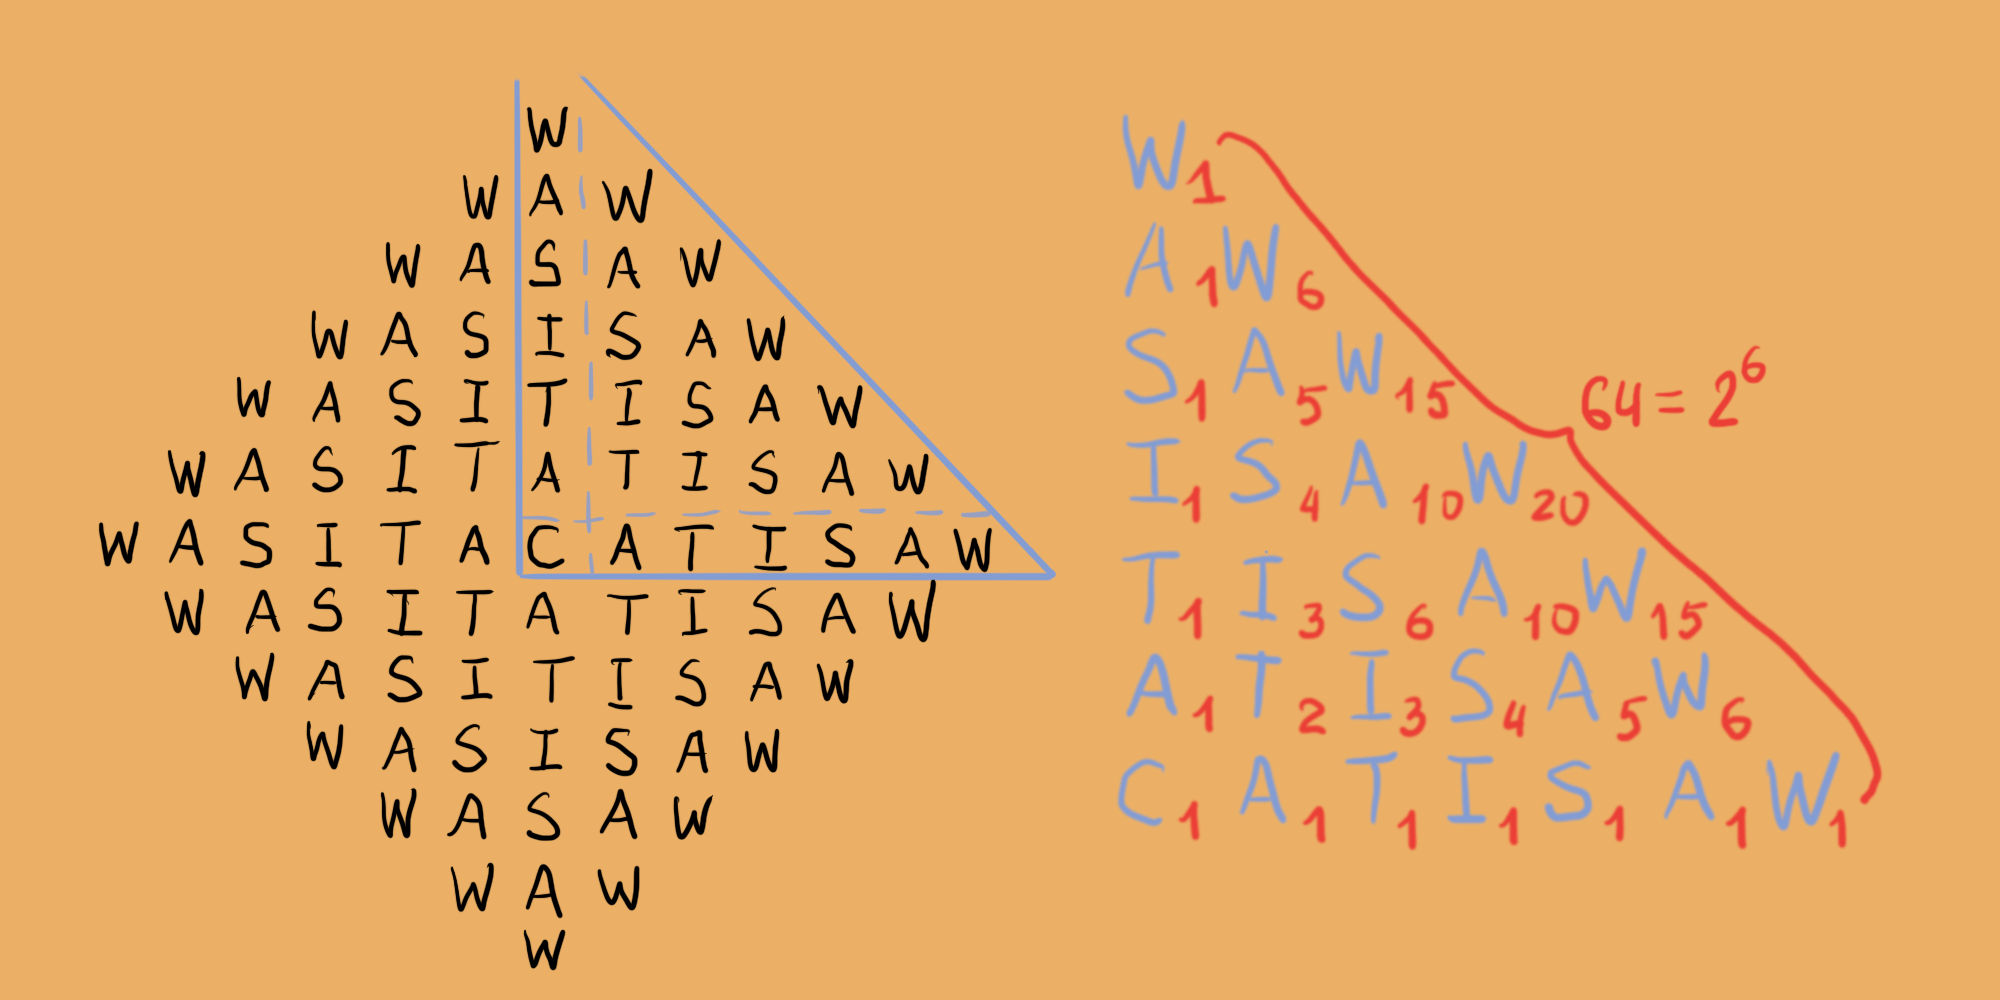 W
W A W
W A S A W
W A S I S A W
W A S I T I S A W
W A S I T A T I S A W
W A S I T A C A T I S A W
W A S I T A T I S A W
W A S I T I S A W
W A S I S A W
W A S A W
W A W
W
W 1
A 1 W 6
S 1 A 5 W 15
I 1 S 4 A 10 W 20
T 1 I 3 S 6 A 10 W 15
A 1 T 2 I 3 S 4 A 5 W 6
C 1 A 1 T 1 I 1 S 1 A 1 W 1
64 = 2⁶